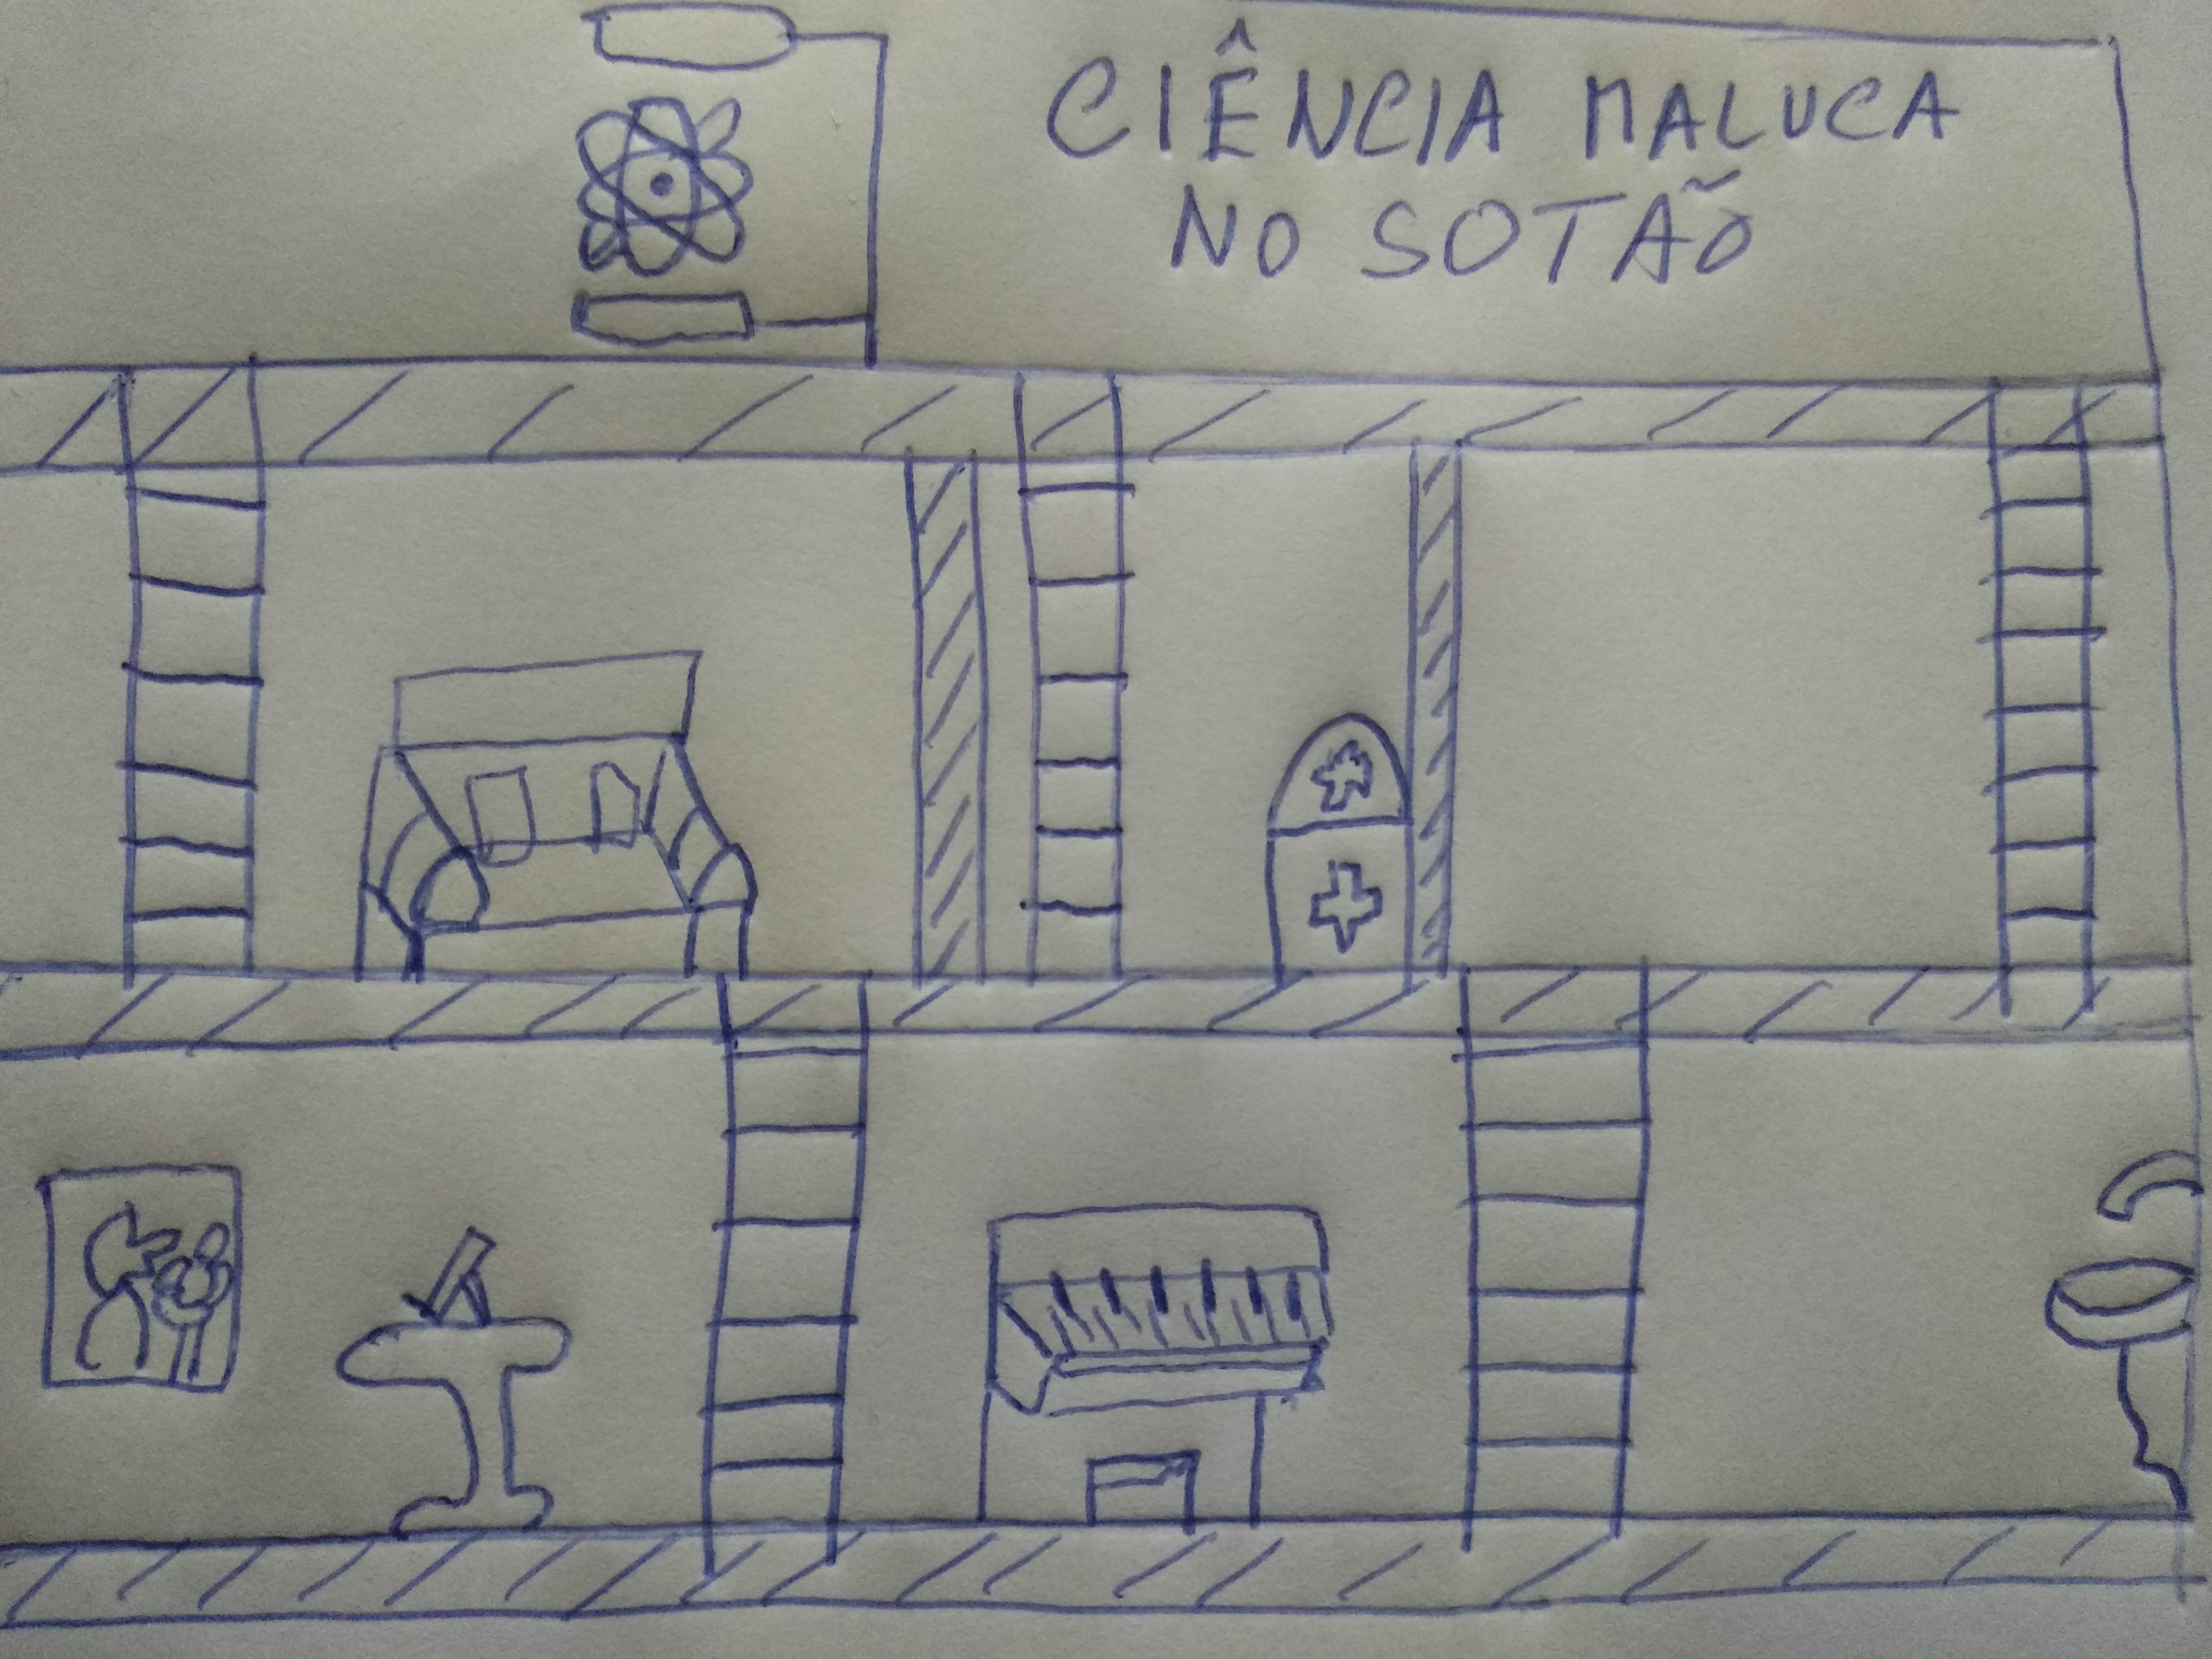 CIÊNCIA MALUCA
NO SOTÃO